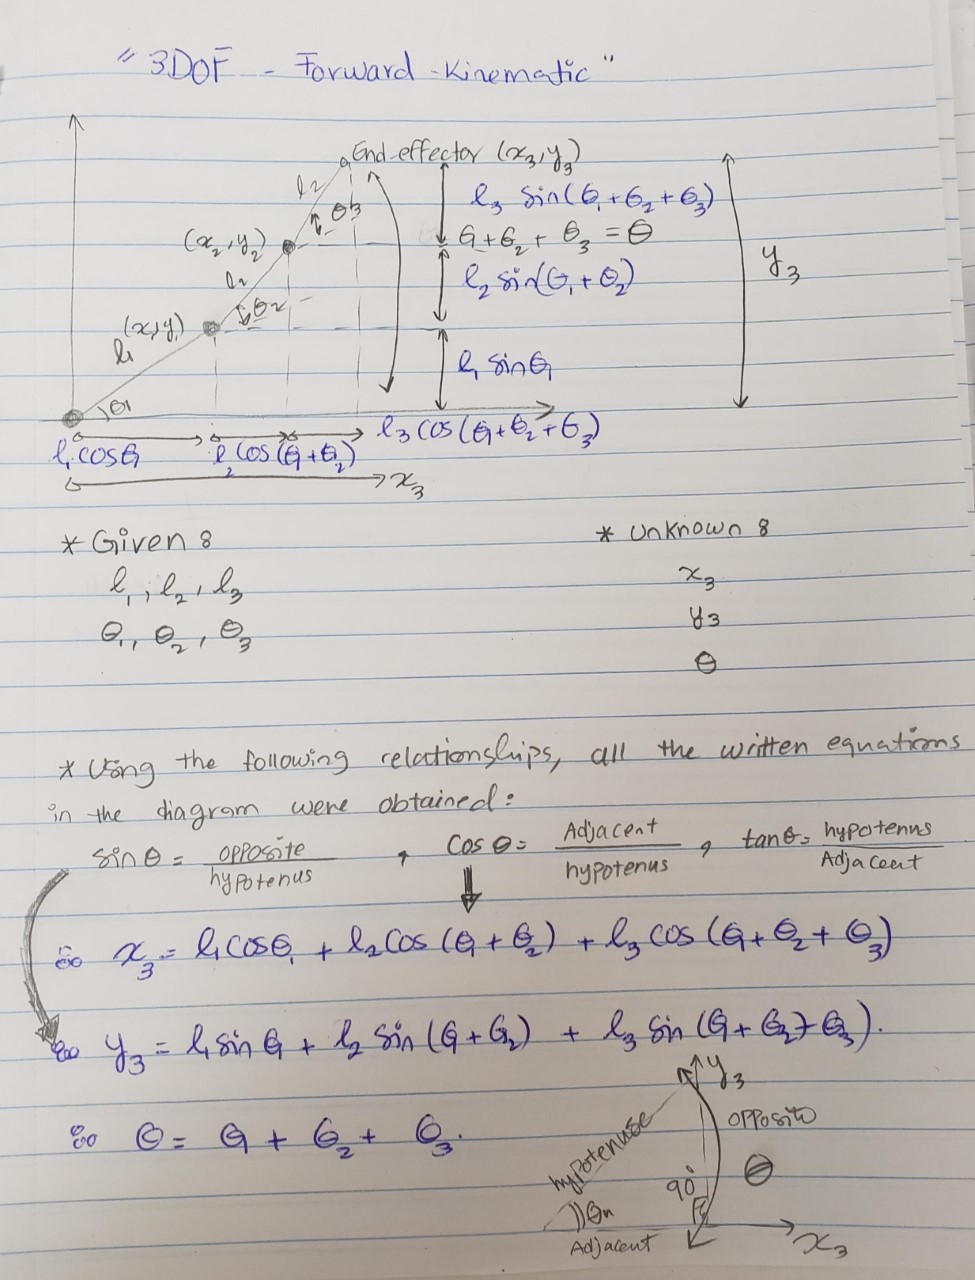 "3DOF - Forward-Kinematic"
End-effector (x₃,y₃)
l₂
θ3
l₃ sin(θ₁+θ₂+θ₃)
(x₂,y₂)
θ₁+θ₂+θ₃=θ
y₃
l₂
θ2
l₂ sin(θ₁+θ₂)
(x₁,y₁)
l₁
l₁ sinθ₁
θ1
l₁cosθ₁
l₂cos(θ₁+θ₂)
l₃cos(θ₁+θ₂+θ₃)
x₃
* Given :
* Unknown :
l₁, l₂, l₃
x₃
θ₁, θ₂, θ₃
y₃
θ
* Using the following relationships, all the written equations
in the diagram were obtained:
sinθ = opposite/hypotenus , Cosθ = Adjacent/hypotenus , tanθ = hypotenus/Adjacent
∴ x₃ = l₁cosθ₁ + l₂cos(θ₁+θ₂) + l₃cos(θ₁+θ₂+θ₃)
∴ y₃ = l₁sinθ₁ + l₂ sin(θ₁+θ₂) + l₃ sin(θ₁+θ₂+θ₃).
∴ θ = θ₁ + θ₂ + θ₃.
y₃
opposite
hypotenuse
θ
90°
θn
Adjacent
x₃